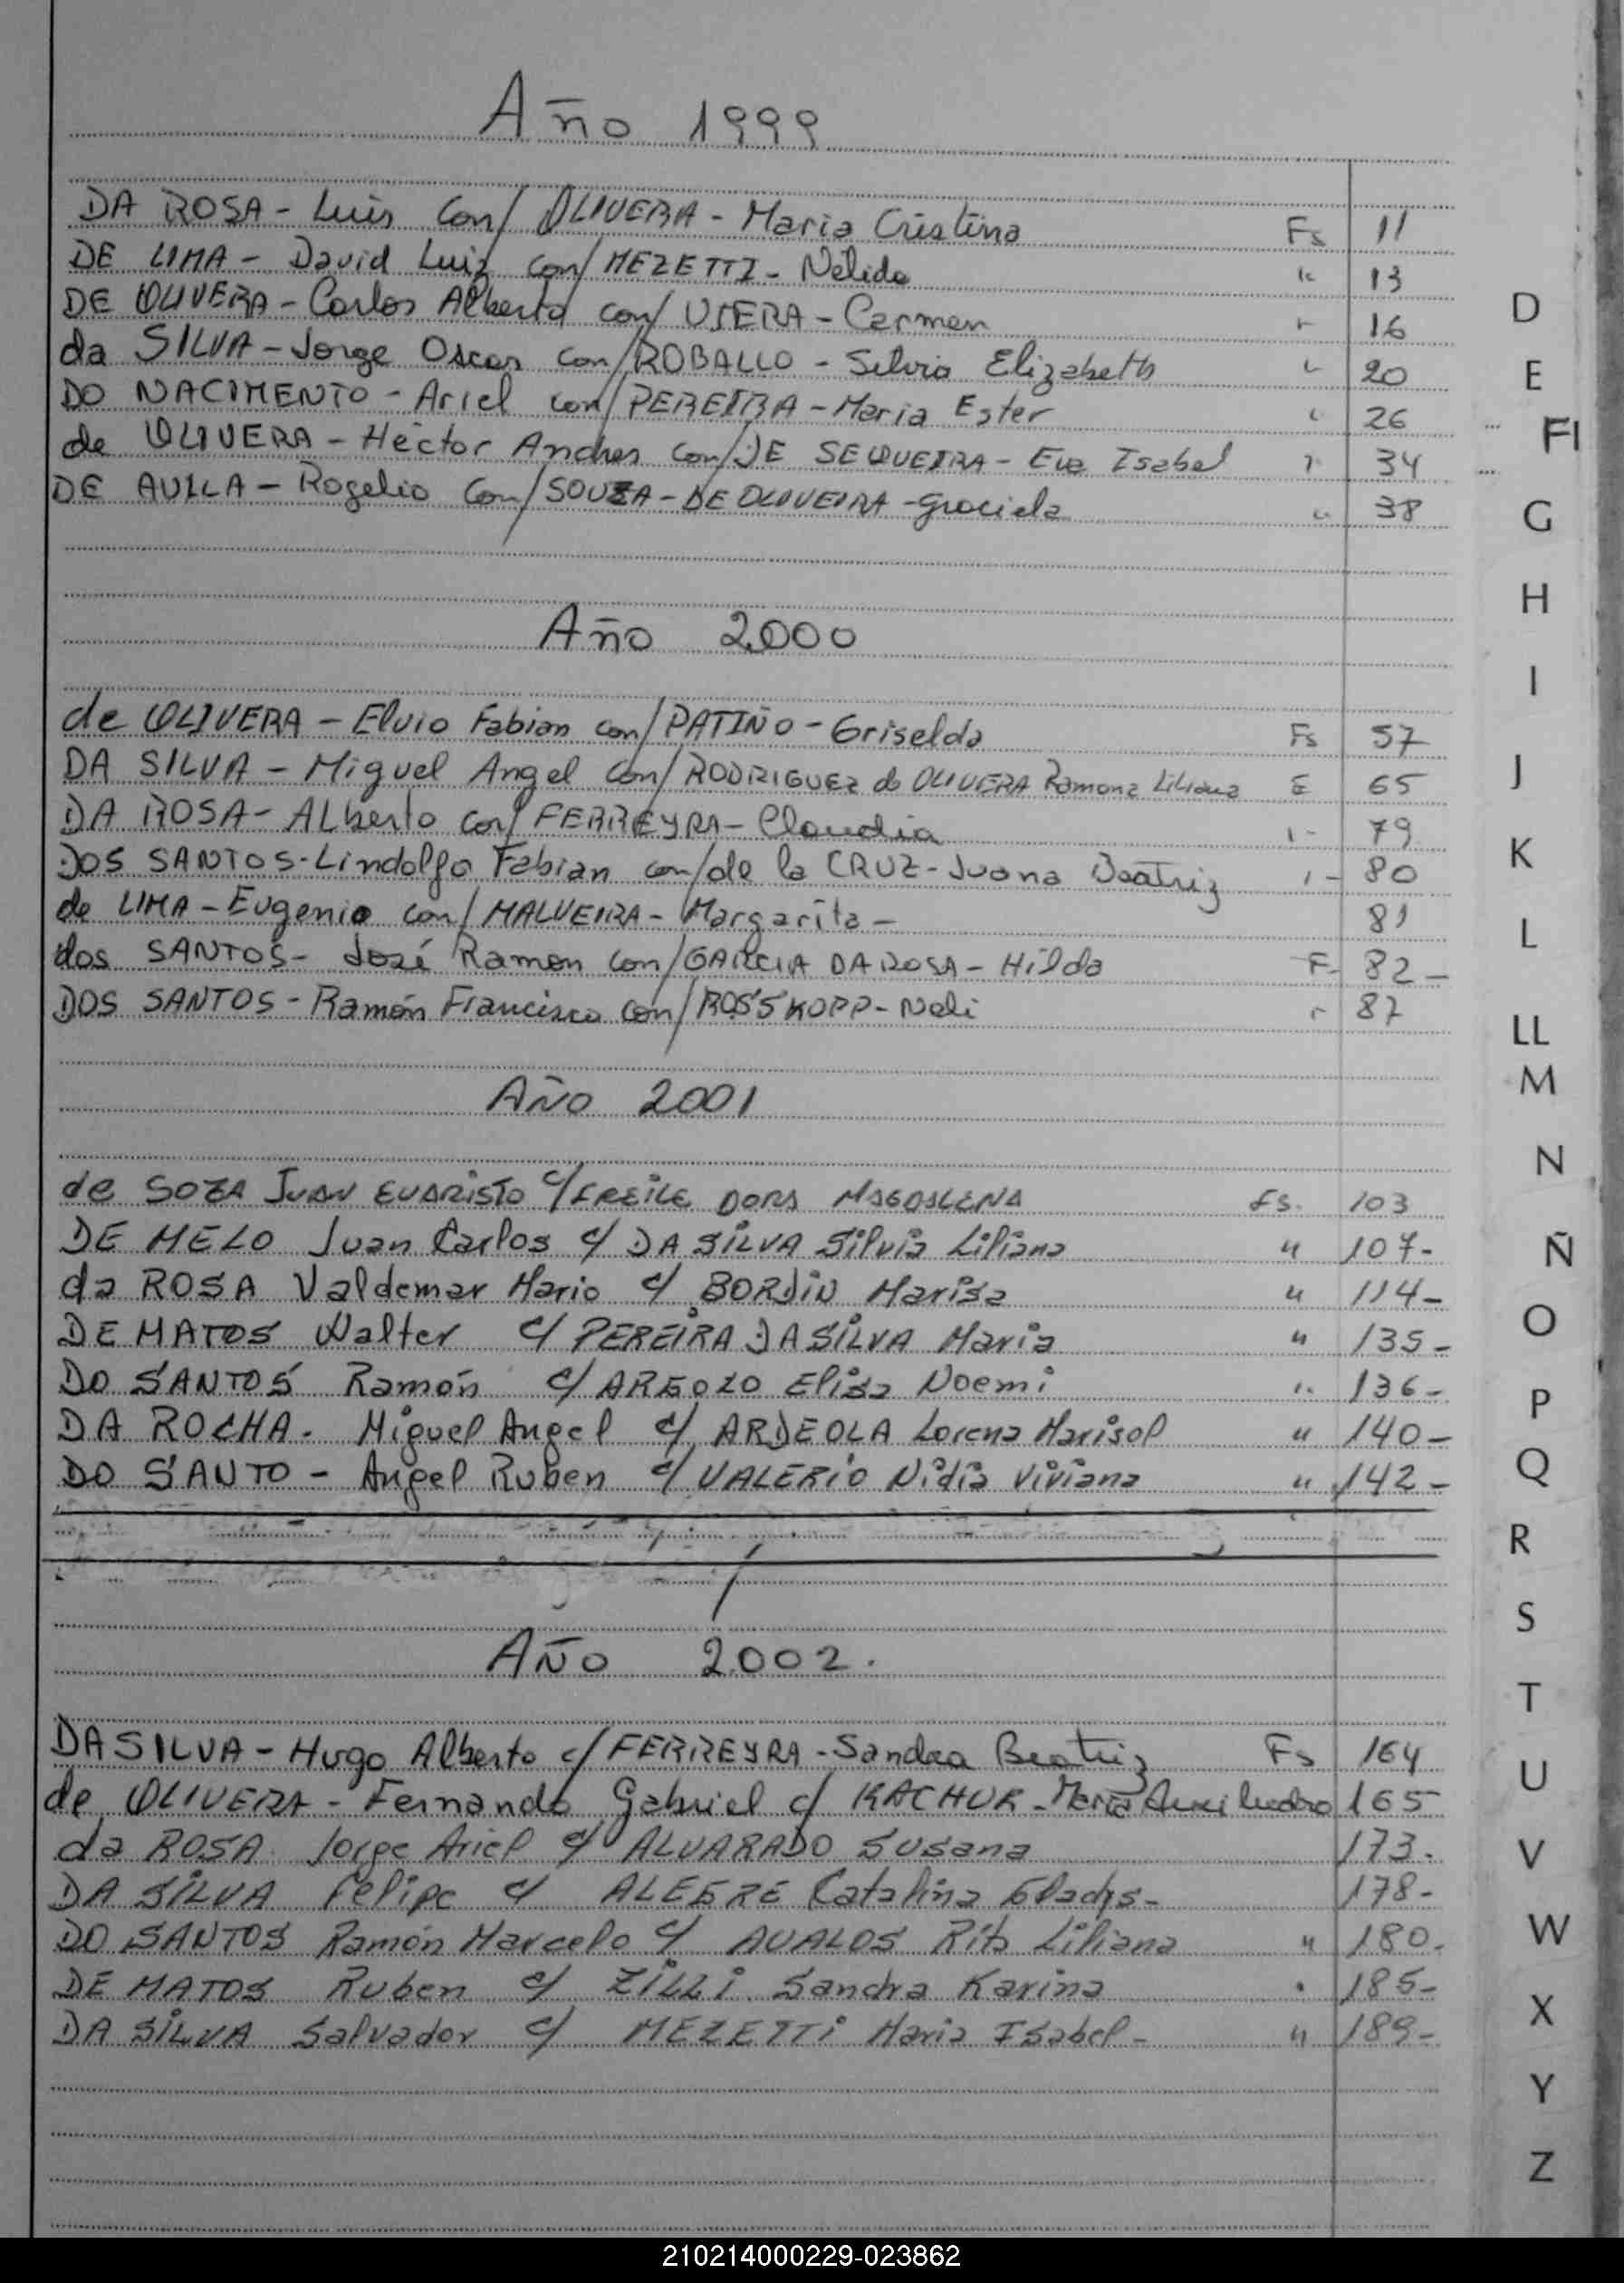 Año 1999
DA ROSA - Luis con/ OLIVERA - Maria Cristina Fs 11
DE LIMA - David Luiz con/ MEZETTI - Nelida " 13
DE OLIVERA - Carlos Alberto con/ VIERA - Carmen " 16
da SILVA - Jorge Oscar con/ ROBALLO - Silvia Elizabeth " 20
DO NACIMENTO - Ariel con/ PEREIRA - Maria Ester " 26
de OLIVERA - Héctor Andres con/ DE SEQUEIRA - Eva Isabel " 34
DE AVILA - Rogelio con/ SOUZA - DE OLIVEIRA - Graciela " 38
Año 2000
de OLIVERA - Elvio Fabian con/ PATIÑO - Griselda Fs 57
DA SILVA - Miguel Angel con/ RODRIGUEZ de OLIVERA Ramona Liliana 65
DA ROSA - Alberto con/ FERREYRA - Claudia 79
DOS SANTOS - Lindolfo Fabian con/ de la CRUZ - Juana Beatriz 80
de LIMA - Eugenio con/ MALVEIRA - Margarita - 81
dos SANTOS - José Ramon con/ GARCIA DA ROSA - Hilda F. 82 -
DOS SANTOS - Ramón Francisco con/ ROSSKOPP - Neli 87
Año 2001
de SOZA JUAN EVARISTO c/ FREILE DORA MAGDALENA FS. 103
DE MELO Juan Carlos c/ DA SILVA Silvia Liliana " 107-
da ROSA Valdemar Mario c/ BORDIN Marisa " 114-
DE MATOS Walter c/ PEREIRA DA SILVA Maria " 135-
DO SANTOS Ramón c/ AREGOZO Elisa Noemi " 136-
DA ROCHA. Miguel Angel c/ ARDEOLA Lorena Marisol " 140-
DO SANTO - Angel Ruben c/ VALERIO Nidia Viviana " 142-
AÑO 2002.
DA SILVA - Hugo Alberto c/ FERREYRA - Sandra Beatriz Fs 164
de OLIVERA - Fernando Gabriel c/ KACHUK - Maria Auxiliadora 165
da ROSA Jorge Ariel c/ ALVARADO Susana 173.
DA SILVA Felipe c/ ALEGRE Catalina Gladys- 178-
DO SANTOS Ramón Marcelo c/ AVALOS Rita Liliana " 180.
DE MATOS Ruben c/ ZILLI Sandra Karina " 185-
DA SILVA Salvador c/ MEZETTI Maria Isabel- " 189-
D
E
FI
G
H
I
J
K
L
LL
M
N
Ñ
O
P
Q
R
S
T
U
V
W
X
Y
Z
210214000229-023862